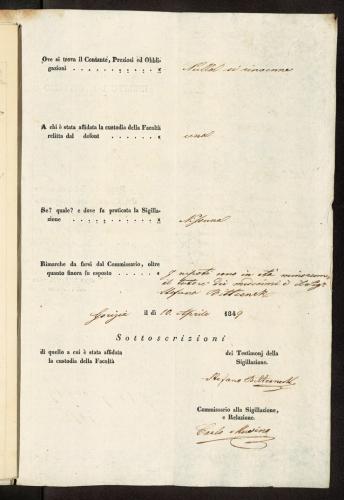 Ove si trova il Contante, Preziosi ed Obbli-
gazioni . . . . . . . . „ Nulla si rinvenne
A chi è stata affidata la custodia della Facoltà
relitta dal defont . . . . . . „
Se? quale? e dove fu praticata la Sigilla-
zione . . . . . . . . „ Nessuna
Rimarche da farsi dal Commissario, oltre
quanto finora fu esposto . . . . . „ I nipoti sono in età minorenne,
il tutore dei minorenni è il
Stefano
Gorizia il dì 10. Aprile 1849
Sottoscrizioni
di quello a cui è stata affidata
la custodia della Facoltà
dei Testimonj della
Sigillazione.
Stefano
Commissario alla Sigillazione,
e Relazione.
Carlo